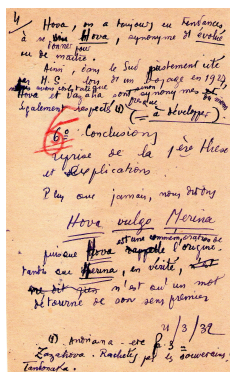 4/ Hova on a toujours eu tendances
à se Hova, synonyme d'évolué
ou de maître.
Ainsi, dans le Sud justement cité
par H.S. lors d'un voyage en 1929,
Hova et Vazaha sont synonymes
également respectés (1) (= à développer)
6° Conclusions
reprise de la 1ère thèse
et explications
Plus que jamais, nous disons
Hova vulgo Merina
puisque Hova rappelle l'origine,
tandis que Merina, en vérité,
n'est qu'un mot
détourné de son sens premier
4/3/32
(1) Andriana - etc p. 3 =
Zazahova. Rachetés par les souverains